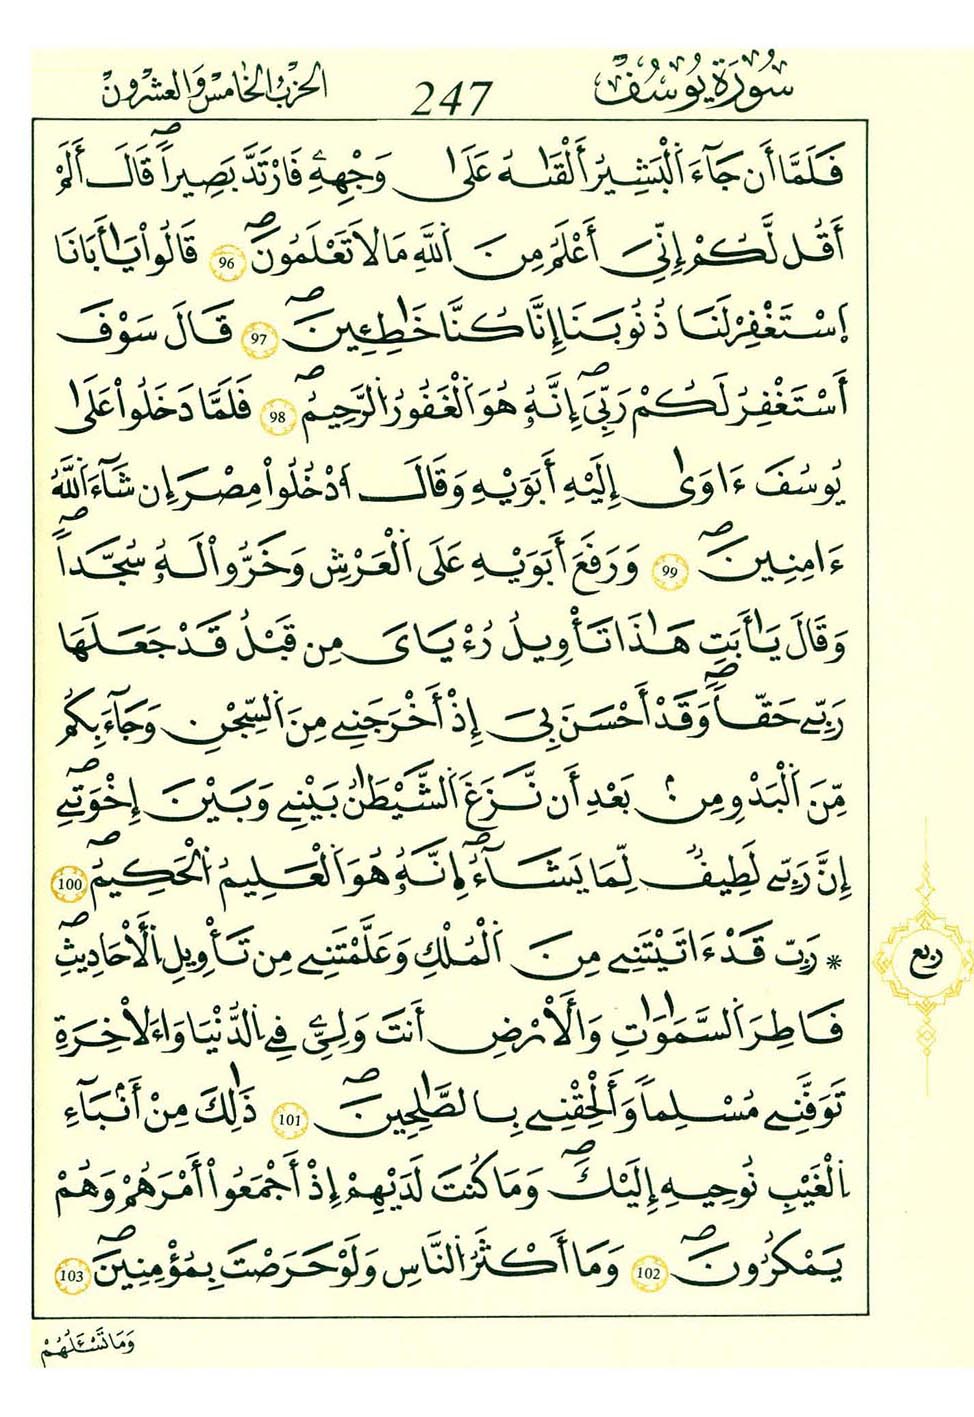 سُورَةُ يُوسُفَ 247 الحزب الخامس والعشرون
فَلَمَّا أَن جَآءَ اَ۬لْبَشِيرُ أَلْقَىٰهُ عَلَىٰ وَجْهِهِۦ فَارْتَدَّ بَصِيراٗۖ قَالَ أَلَمَ
اَقُل لَّكُمُۥٓ إِنِّيَ أَعْلَمُ مِنَ اَ۬للَّهِ مَا لَا تَعْلَمُونَۖ 96 قَالُواْ يَٰٓأَبَانَا
اَ۪سْتَغْفِرْ لَنَا ذُنُوبَنَا إِنَّا كُنَّا خَٰطِـِٕينَۖ 97 قَالَ سَوْفَ
أَسْتَغْفِرُ لَكُمْ رَبِّيَ إِنَّهُۥ هُوَ اَ۬لْغَفُورُ اُ۬لرَّحِيمُۖ 98 فَلَمَّا دَخَلُواْ عَلَىٰ
يُوسُفَ ءَاوَىٰٓ إِلَيْهِ أَبَوَيْهِ وَقَالَ اَ۟دْخُلُواْ مِصْرَ إِن شَآءَ اَ۬للَّهُ
ءَامِنِينَۖ 99 وَرَفَعَ أَبَوَيْهِ عَلَى اَ۬لْعَرْشِ وَخَرُّواْ لَهُۥ سُجَّداٗۖ
وَقَالَ يَٰٓأَبَتِ هَٰذَا تَأْوِيلُ رُءْيَٰيَ مِن قَبْلُ قَدْ جَعَلَهَا
رَبِّے حَقّاٗۖ وَقَدْ أَحْسَنَ بِيَ إِذْ أَخْرَجَنِے مِنَ اَ۬لسِّجْنِ وَجَآءَ بِكُم
مِّنَ اَ۬لْبَدْوِ مِنۢ بَعْدِ أَن نَّزَغَ اَ۬لشَّيْطَٰنُ بَيْنِے وَبَيْنَ إِخْوَتِيَۖ
إِنَّ رَبِّے لَطِيفٞ لِّمَا يَشَآءُۖ اِنَّهُۥ هُوَ اَ۬لْعَلِيمُ اُ۬لْحَكِيمُۖ 100
* رَبِّ قَدْ ءَاتَيْتَنِے مِنَ اَ۬لْمُلْكِ وَعَلَّمْتَنِے مِن تَأْوِيلِ اِ۬لْأَحَادِيثِۖ
فَاطِرَ اَ۬لسَّمَٰوَٰتِ وَالْأَرْضِ أَنتَ وَلِيِّۦ فِے اِ۬لدُّنْيَا وَالْأٓخِرَةِ
تَوَفَّنِے مُسْلِماٗ وَأَلْحِقْنِے بِالصَّٰلِحِينَۖ 101 ذَٰلِكَ مِنْ أَنۢبَآءِ
اِ۬لْغَيْبِ نُوحِيهِ إِلَيْكَۖ وَمَا كُنتَ لَدَيْهِمُۥٓ إِذْ أَجْمَعُوٓاْ أَمْرَهُمْ وَهُمْ
يَمْكُرُونَۖ 102 وَمَآ أَكْثَرُ اُ۬لنَّاسِ وَلَوْ حَرَصْتَ بِمُؤْمِنِينَۖ 103
ربع
وَمَا تَسْـَٔلُهُمْ